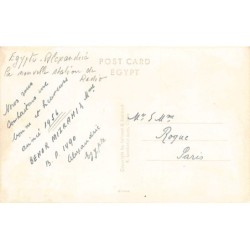 Egypte - Alexandrie
La nouvelle station de
Radio
POST CARD
EGYPT
Nous vous
souhaitons une
bonne et heureuse
année 1954
BENOR MIZRAHI &
B.P. 1490
Alexandrie
Egypte
Mr & Mme
Roque
Paris